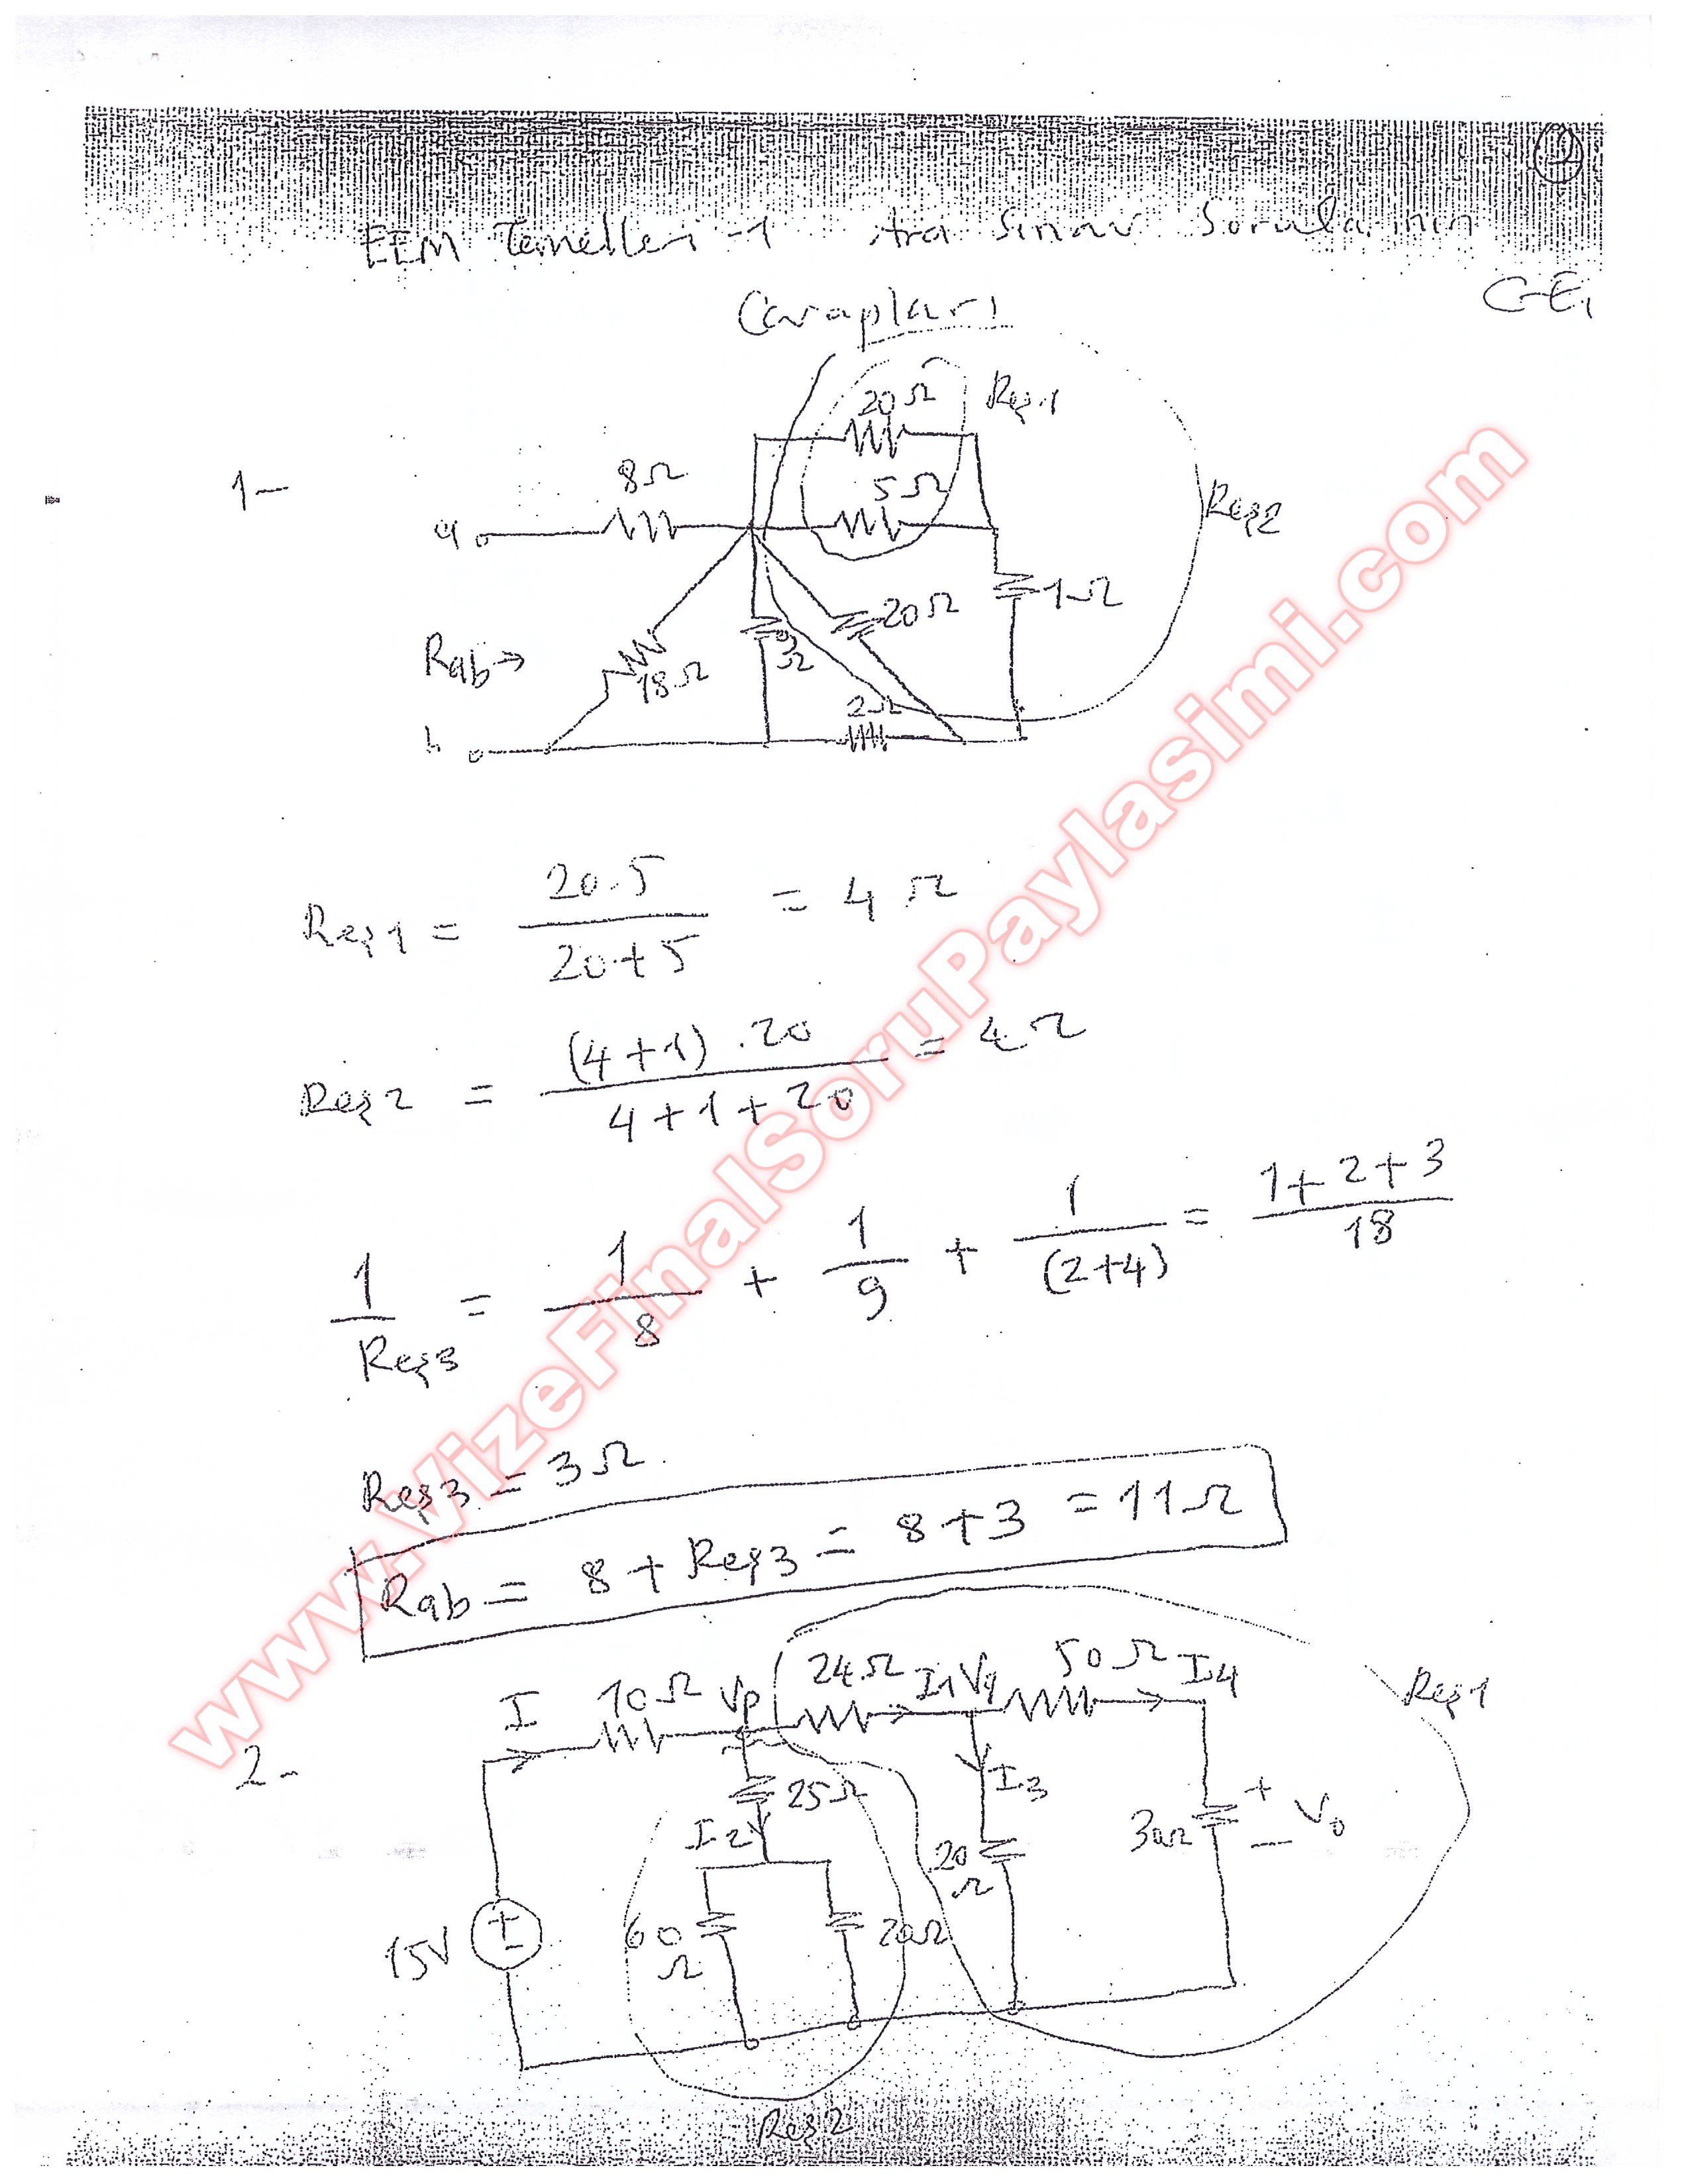 2
EEM Temelleri -1 Ara Sınav Sorularının
G.E1
Cevapları
1-
20Ω
Reş1
8Ω
5Ω
Reş2
a
1Ω
20Ω
Rab→
18Ω
9Ω
2Ω
b
Reş1 = 20.5 / 20+5 = 4Ω
Reş2 = (4+1).20 / 4+1+20 = 4Ω
1/Reş3 = 1/8 + 1/9 + 1/(2+4) = 1+2+3 / 18
Reş3 = 3Ω
Rab = 8 + Reş3 = 8+3 = 11Ω
2-
I 10Ω Vp 24Ω I1 V1 50Ω I4
Reş1
25Ω
I3
I2
20Ω
30Ω
+ Vo -
15V
60Ω
20Ω
Reş2
www.VizeFinalSoruPaylasimi.com